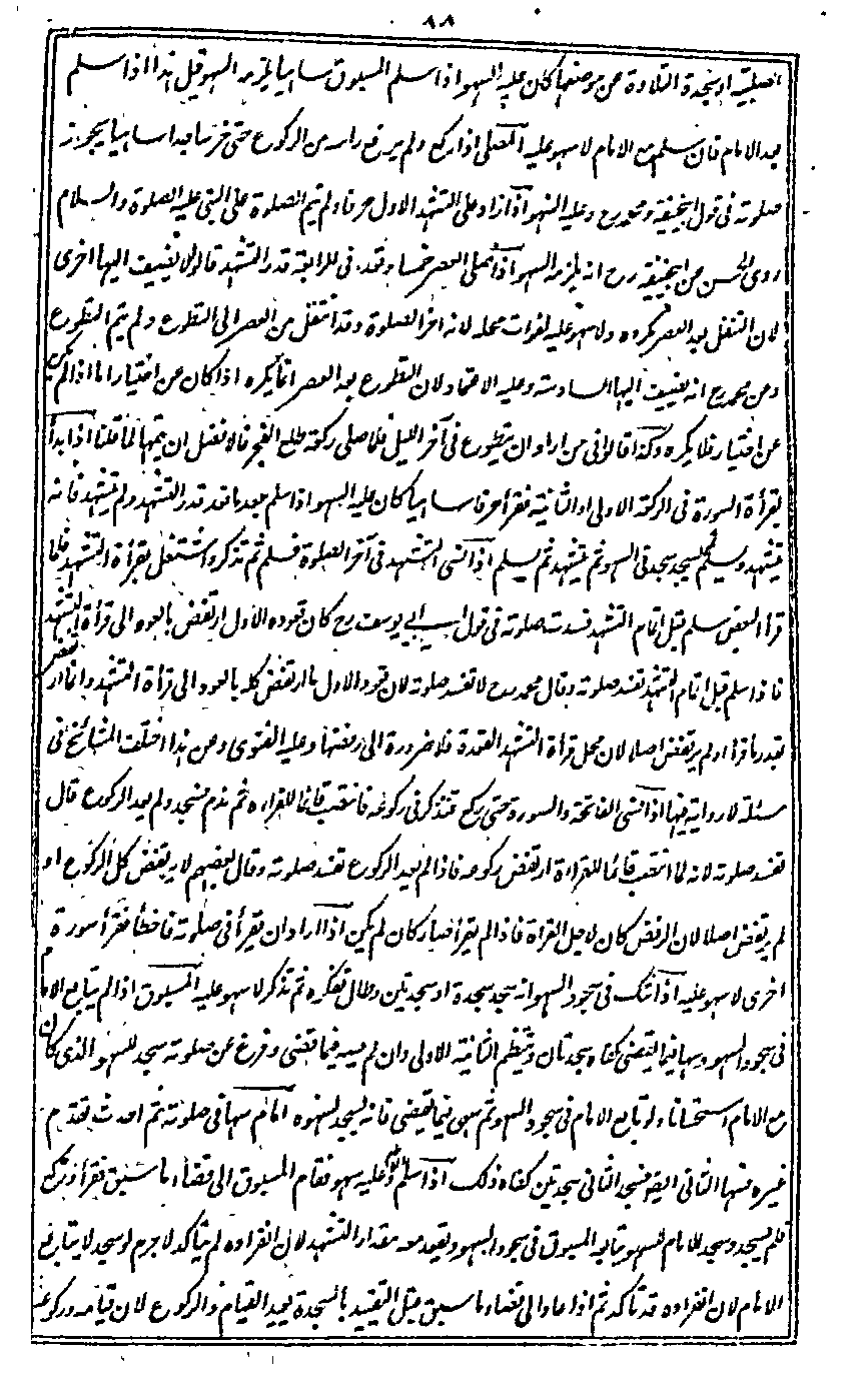 ٨٨
اصلية او سجدة التلاوة عن موضعها كان عليه السهو اذا سلم المسبوق ساهيا يلزمه السهو قيل هذا اذا سلم
بعد الامام فان سلم مع الامام لا سهو عليه المصلى اذا ركع ولم يرفع راسه من الركوع حتى خر ساجدا ساهيا يجوز
صلوته فى قول ابيحنيفة ومحمد رح وعليه السهو اذا زاد على التشهد الاول حرفا ولم يتم الصلوة على النبى عليه الصلوة والسلام
روى الحسن عن ابيحنيفة رح انه يلزمه السهو اذا صلى العصر خمسا وقعد فى الرابعة قدر التشهد قالوا لا يضيف اليها اخرى
لان التنفل بعد العصر مكروه ولا سهو عليه لفوات محله لانه اخر الصلوة وقد انتقل من العصر الى التطوع ولم يتم التطوع
وعن محمد رح انه يضيف اليها السادسة وعليه الاعتماد لان التطوع بعد العصر انما يكره اذا كان عن اختيار اما اذا لم يكن
عن اختيار فلا يكره وكذا قالوا فى من اراد ان يتطوع فى آخر الليل فلما صلى ركعة طلع الفجر فالافضل ان يتمها لما قلنا اذا بدأ
بقرأة السورة فى الركعة الاولى او الثانية فقرأ حرفا ساهيا كان عليه السهو اذا سلم بعد ما قعد قدر التشهد ولم يتشهد فانه
يتشهد ويسلم ثم يسجد سجدتى السهو ثم يتشهد ثم يسلم اذا نسى التشهد فى آخر الصلوة فسلم ثم تذكر واشتغل بقرأة التشهد فلما
قرأ البعض سلم قبل اتمام التشهد فسدت صلوته فى قول ابى يوسف رح كان قعوده الاول ارتفض بالعود الى قرأة التشهد
فاذا سلم قبل اتمام التشهد تفسد صلوته وقال محمد رح لا تفسد صلوته لان قعود الاول ما ارتفض كله بالعود الى قرأة التشهد وانما ارتفض
بقدر ما قرأ او لم يرتفض اصلا لان محل قرأة التشهد القعدة فلا ضرورة الى رفضها وعليه الفتوى وعن هذا اختلف المشائخ فى
مسئلة لا رواية فيها اذا نسى الفاتحة والسورة حتى ركع فتذكر فى ركوعه فانتصب قائما للقراءة ثم ندم فسجد ولم يعد الركوع قال
تفسد صلوته لانه لما انتصب قائما للقراءة ارتفض ركوعه فاذا لم يعد الركوع تفسد صلوته وقال بعضهم لا يرتفض كل الركوع او
لم يرتفض اصلا لان الرفض كان لاجل القرأة فاذا لم يقرأ صار كان لم يكن اذا اراد ان يقرأ فى صلوته فاخطأ فقرأ سورة
اخرى لا سهو عليه اذا شك فى سجود السهو انه سجد سجدة او سجدتين وطال تفكره ثم تذكر لا سهو عليه المسبوق اذا لم يتابع الامام
فى سجود السهو وسها فيما يقضى كفاه سجدتان وتنتظم الثانية الاولى وان لم يسه فيما يقضى وفرغ عن صلوته سجد للسهو الذى كان
مع الامام استحسانا ولو تابع الامام فى سجود السهو ثم سهى فيما يقضى فانه يسجد لسهوه الامام سها فى صلوته ثم احدث فقدم
غيره فسها الثانى ايضا فسجد الثانى سجدتين كفاه ذلك اذا سلم وعليه سهو فقام المسبوق الى قضاء ما سبق فقرأ وركع
فلم يسجد وسجد الامام للسهو يتابعه المسبوق فى سجود السهو ويقعد معه مقدار التشهد لان انفراده لم يتأكد لا جرم لو سجد لا يتابع
الامام لان انفراده قد تاكد ثم اذا عاد الى قضاء ما سبق قبل التقييد بالسجدة يعيد القيام والركوع لان قيامه وركوعه